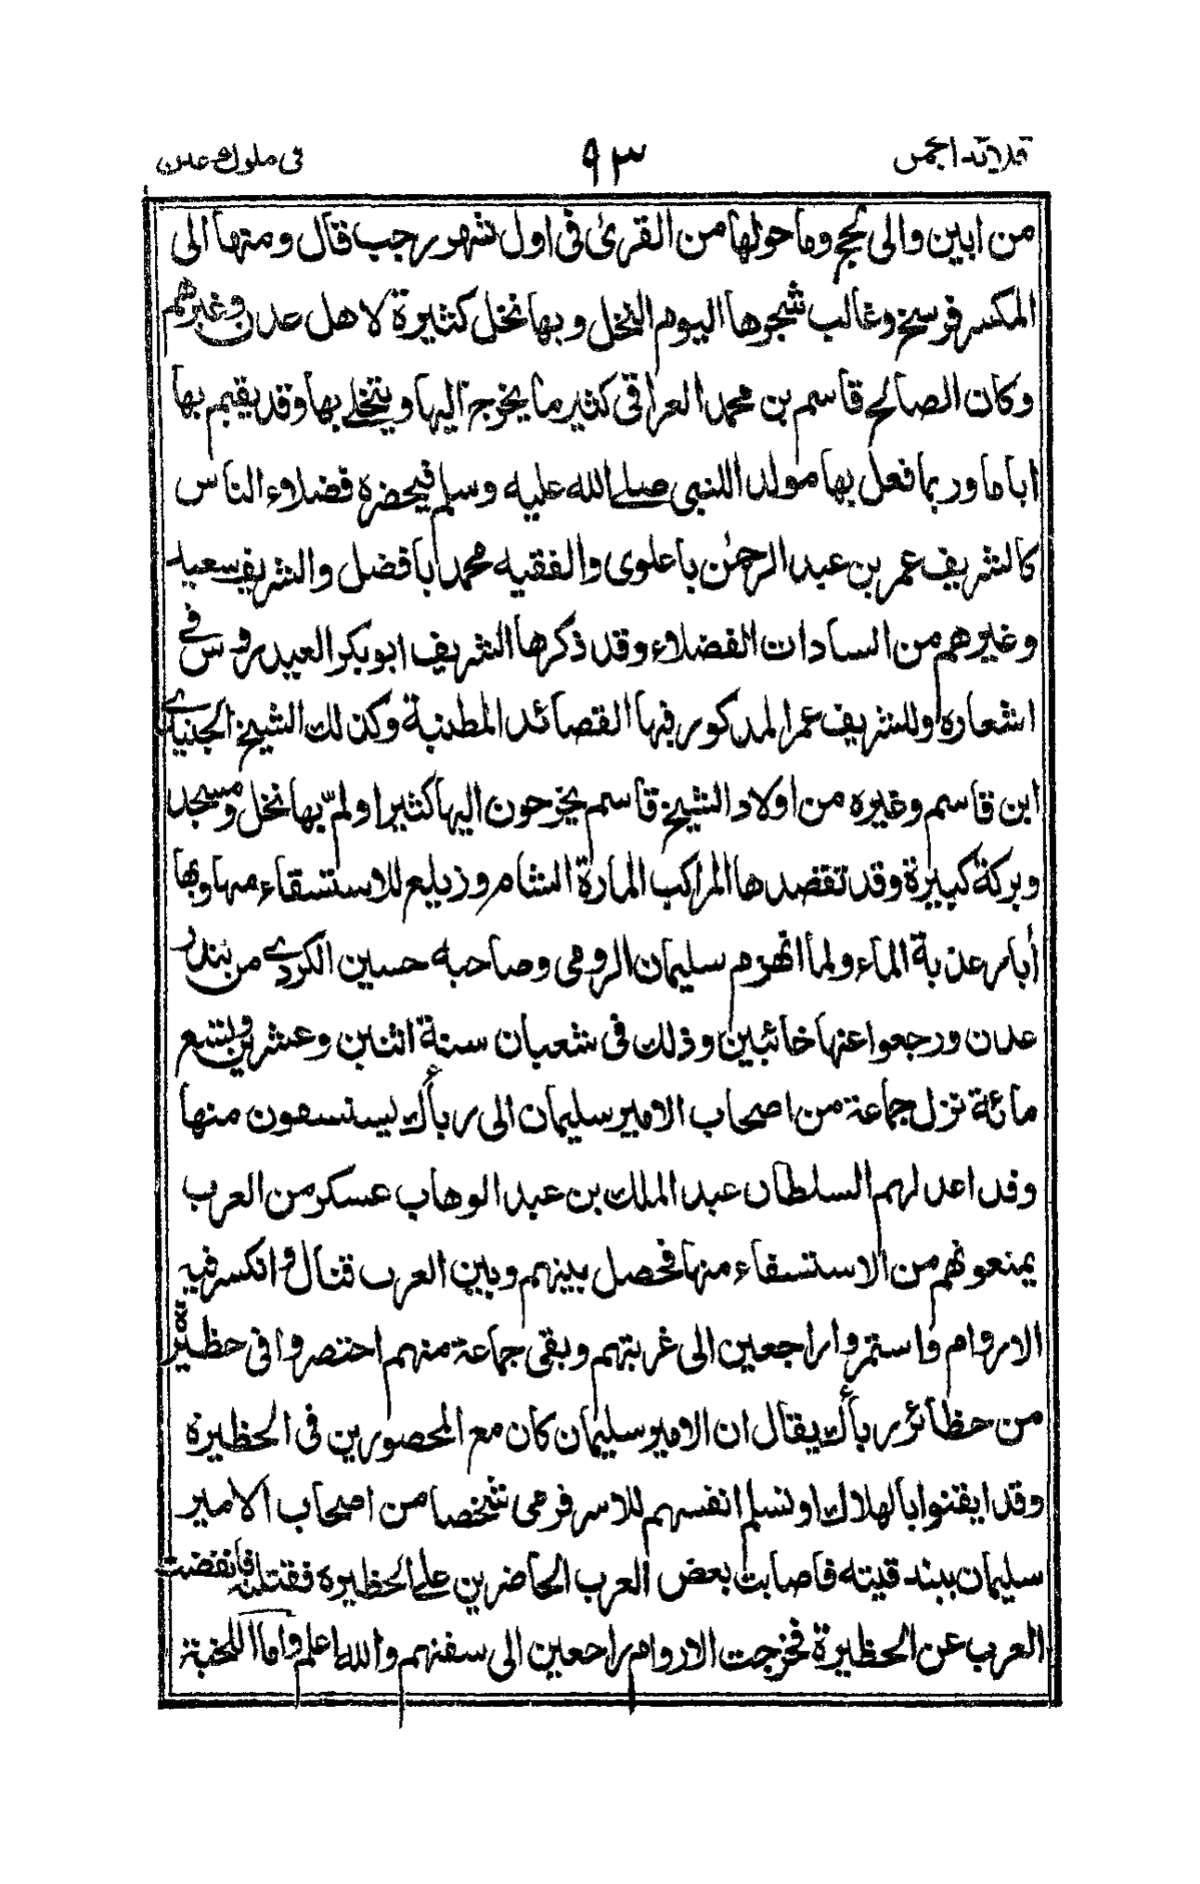 قلائد الجمن ٩٣ في ملوك عدن
من ابين والى لحج وما حولها من القرى في اول شهر رجب قال ومنها الى
المكسر فرسخ وغالب شجرها اليوم النخل وبها نخل كثيرة لاهل عدن وغيرهم
وكان الصالح قاسم بن محمد العراقي كثير ما يخرج اليها ويتخلى بها وقد يقيم بها
اياما وربما فعل بها مولد النبي صلى الله عليه وسلم فيحضره فضلاء الناس
كالشريف عمر بن عبد الرحمن باعلوى والفقيه محمد بافضل والشريف سعيد
وغيرهم من السادات الفضلاء وقد ذكرها الشريف ابو بكر العيدروس في
اشعاره وللشريف عمر المذكور فيها القصائد المطنبة وكذلك الشيخ الجنيدي
ابن قاسم وغيره من اولاد الشيخ قاسم يخرجون اليها كثيرا ولهم بها نخل ومسجد
وبركة كبيرة وقد تقصدها المراكب المارة الشام وزيلع للاستسقاء منها وبها
أبار عذبة الماء ولما انهزم سليمان الرومي وصاحبه حسين الكردي من بندر
عدن ورجعوا عنها خائبين وذلك في شعبان سنة اثنين وعشرين وتسع
مائة نزل جماعة من اصحاب الامير سليمان الى رباك يستسقون منها
وقد اعد لهم السلطان عبد الملك بن عبد الوهاب عسكر من العرب
يمنعونهم من الاستسقاء منها فحصل بينهم وبين العرب قتال وانكسر فيه
الاروام واستمروا راجعين الى غربتهم وبقي جماعة منهم احتصروا في حظير
من حظائر رباك يقال ان الامير سليمان كان مع المحصورين في الحظيرة
وقد ايقنوا بالهلاك او تسلم انفسهم للاسر فرمى شخصا من اصحاب الامير
سليمان ببندقيته فاصابت بعض العرب الحاضرين على الحظيرة فقتلته فانفضت
العرب عن الحظيرة فخرجت الاروام راجعين الى سفنهم والله اعلم واما اللخبة